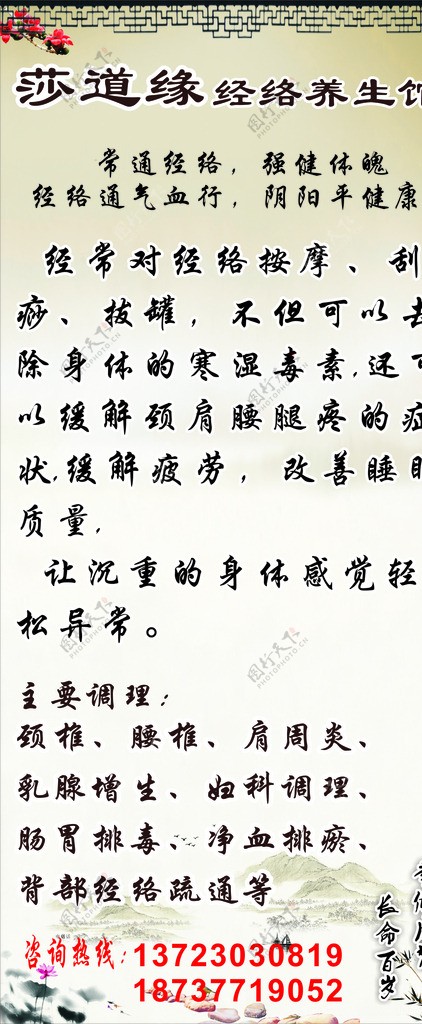 莎道缘经络养生馆
常通经络，强健体魄
经络通气血行，阴阳平健康
经常对经络按摩、刮
痧、拔罐，不但可以去
除身体的寒湿毒素,还可
以缓解颈肩腰腿疼的症
状,缓解疲劳，改善睡眠
质量,
让沉重的身体感觉轻
松异常。
主要调理：
颈椎、腰椎、肩周炎、
乳腺增生、妇科调理、
肠胃排毒、净血排瘀、
背部经络疏通等
长命百岁
咨询热线：13723030819
18737719052